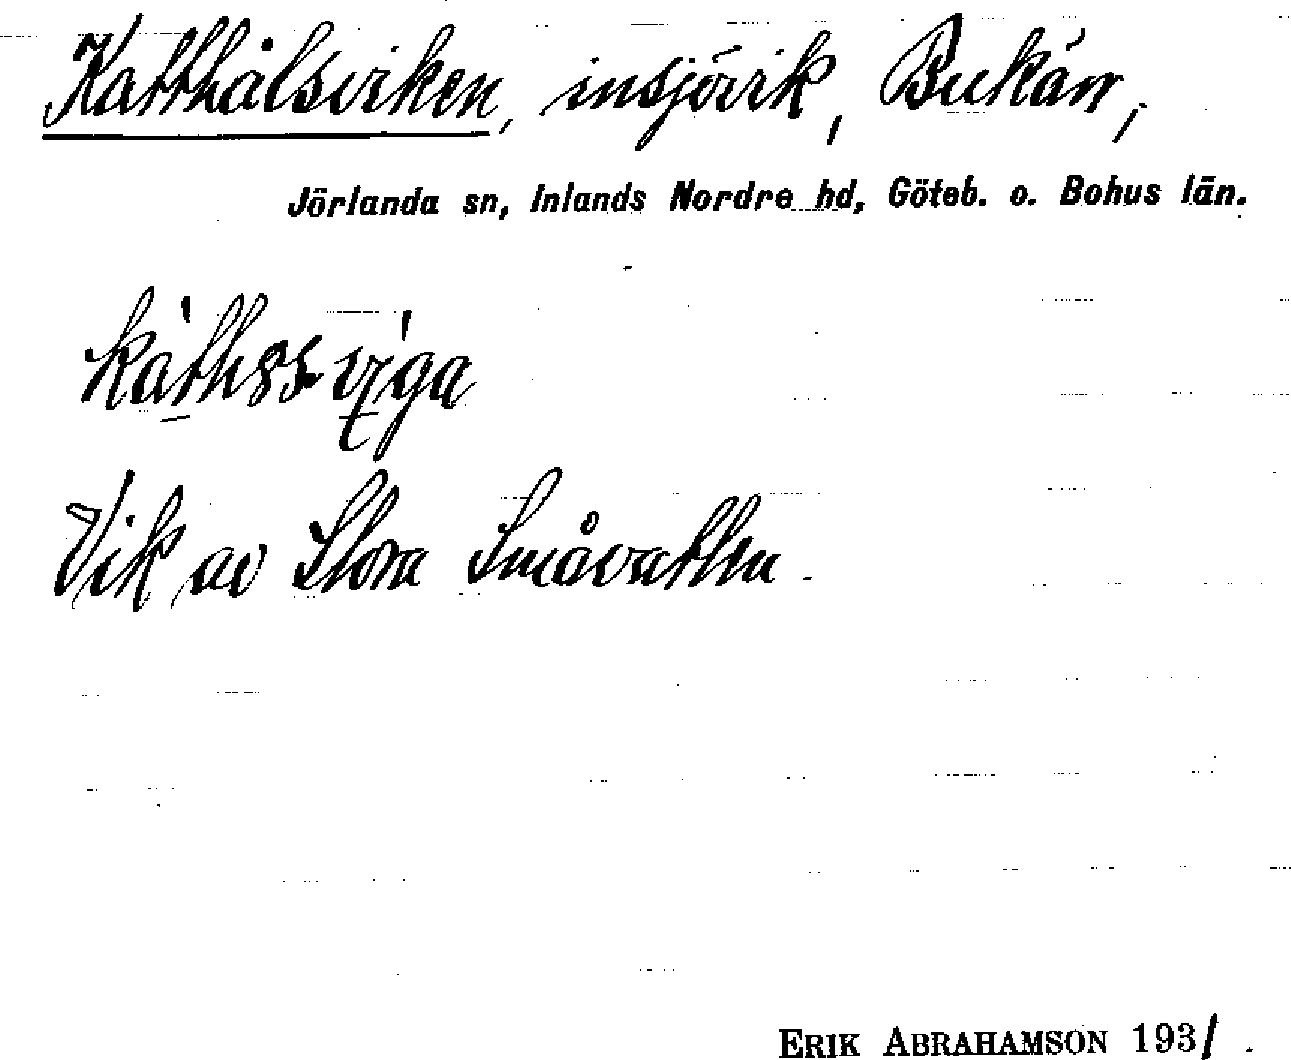 Katthålsviken, insjövik, Bukärr,
Jörlanda sn, Inlands Nordre hd, Göteb. o. Bohus län.
Vik av Stora Småvatten.
ERIK ABRAHAMSON 1931.